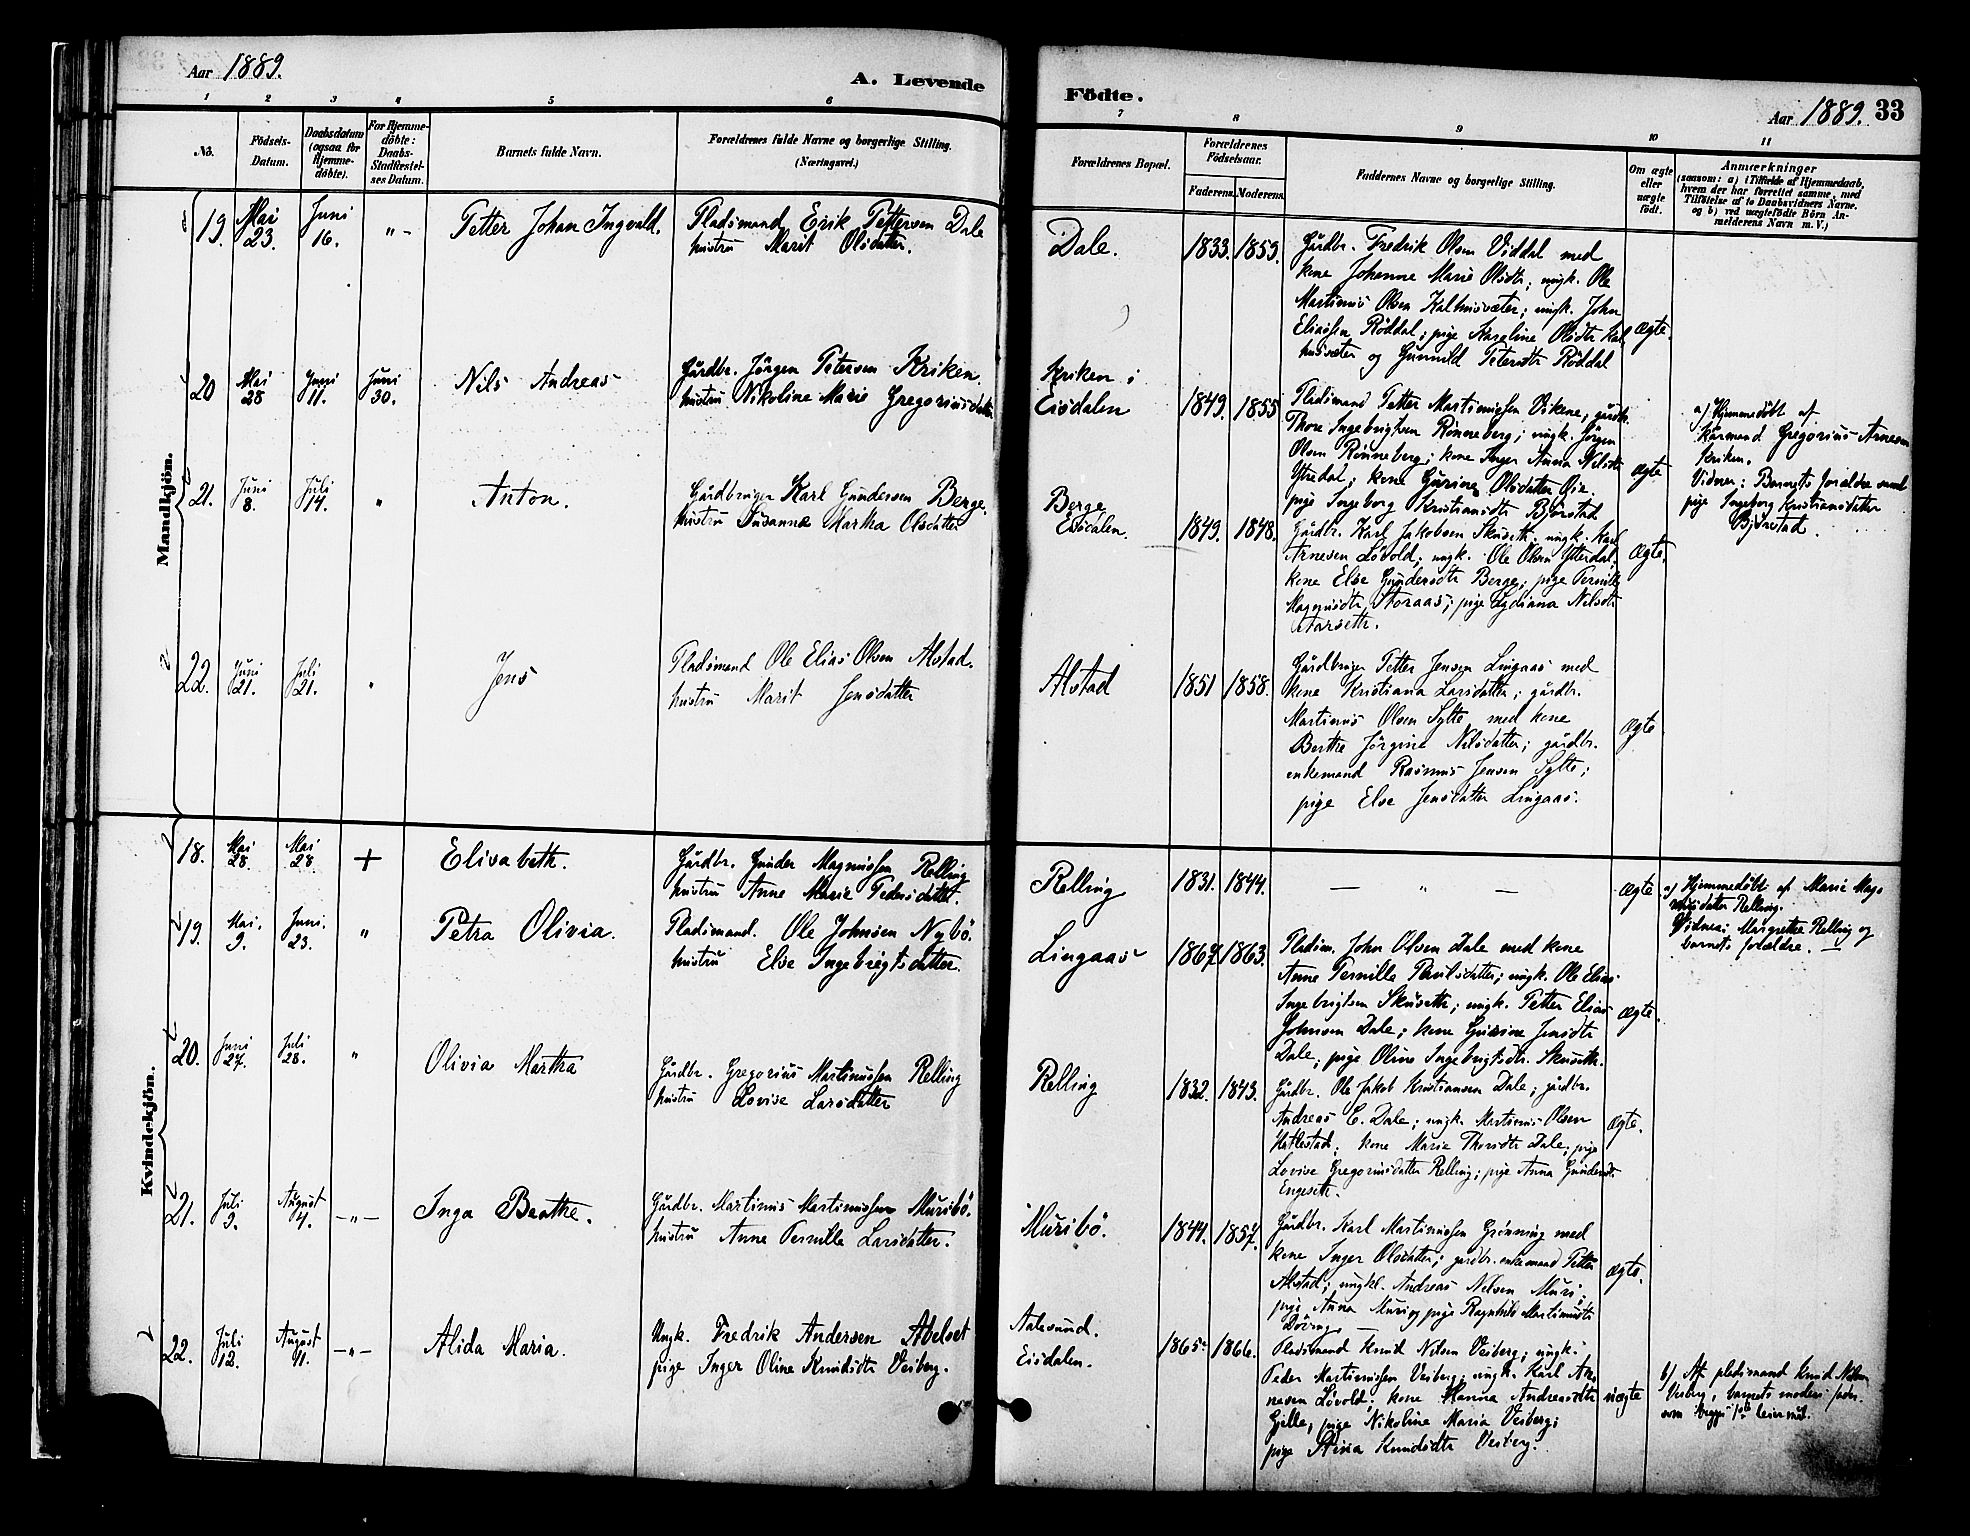 Aar 1889.
A. Levende
1 2 3 4 5 6
No.
Födsels-
Datum.
Daabsdatum
(ogsaa for
Hjemme-
döbte).
For Hjemme-
döbte:
Daabs-
Stadfæstel-
ses Datum.
Barnets fulde Navn.
Forældrenes fulde Navne og borgerlige Stilling.
(Næringsvei.)
Mandkjön.
19. Mai 23. Juni 16. " - Petter Johan Ingvald. Pladsmand Erik Pettersen Dale
hustru Marit Olsdatter.
20 Mai 28 Juni 11. Juni 30. Nils Andreas Gårdbr. Jörgen Petersen Kriken.
hustru Nikoline Marie Gregoriusdatter
21. Juni 8. Juli 14. " Anton. Gårdbruger Karl Gundersen Berge.
hustru Susanna Martha Olsdatter
22. Juni 21. Juli 21. " Jens Pladsmand Ole Elias Olsen Alstad.
hustru Marit Jensdatter
Kvindekjön.
18. Mai 28. Mai 28. + Elisabeth. Gårdbr. Gunder Magnussen Relling
hustru Anne Marie Pedersdatter.
19. Mai. 9. Juni. 23. " Petra Olivia. Pladsmand. Ole Johnsen Nybö.
hustru Else Ingebrigtsdatter.
20. Juni 27. Juli 28. " Olivia Martha Gårdbr. Gregorius Martinussen Relling
hustru Lovise Larsdatter
21. Juli 9. August 4. - " - Inga Berthe. Gårdbr. Martinus Martinussen Muribö.
hustru Anne Pernille Larsdatter.
22. Juli 12. August 11. - " - Alida Maria. Ungk. Fredrik Andersen Abelset
pige Inger Oline Knudsdtr Veiberg.
Födte.
Aar 1889. 33
7 8 9 10 11
Forældrenes Bopæl.
Forældrenes
Födselsaar.
Faderens. Moderens.
Faddernes Navne og borgerlige Stilling.
Om ægte
eller
uægte
födt.
Anmærkninger
(saasom: a) i Tilfælde af Hjemmedaab,
hvem der har forrettet samme, med
Tilföielse af to Daabsvidners Navne.
og b) ved uægtefödte Börn An-
melderens Navn m.V.)
Dale. 1833. 1859. Gårdbr. Fredrik Olsen Viddal med
kone Johanne Marie Olsdtr; ungk. Ole
Martinus Olsen Kalhusvæter; ungk. John
Eliassen Röddal; pige Karoline Olsdtr Kal
husvæter og Gunnild Petersdtr Röddal
ægte.
Kriken i
Eisdalen 1849. 1855 Pladsmand Petter Martinussen Vikene; gårdbr.
Thore Ingebrigtsen Rönneberg; ungk. Jörgen
Olsen Rönneberg; kone Inger Anna Nilsdtr
Ytredal; kone Gurine Olsdatter
pige Ingeborg Kristiansdtr Björstad
ægte
a) Hjemmedøbt af
Kårmand Gregorius Arnesen
Kriken.
Vidner: Barnets forældre samt
pige Ingeborg Kristiansdatter
Björstad.
Berge
Eisdalen. 1849. 1848. Gårdbr. Karl Jakobsen Skuseth. ungk. Karl
Arnesen Lövold; ungk. Ole Olsen Ytterdal,
kone Else Gundersdtr Berge; pige Pernille
Magnusdtr Storaas; pige Lydiana Nilsdtr
ægte.
Alstad 1851 1858. Gårdbruger Petter Jensen Lingaas med
kone Kristiana Larsdatter; gårdbr.
Martinus Olsen Sylte med kone
Berthe Jörgine Nilsdatter; gårdbr.
enkemand Rasmus Jensen Sylte;
pige Else Jensdatter Lingaas.
ægte
Relling 1831. 1844. — " — ægte
a) Hjemmedöbt af Marie Mag-
nusdatter Relling.
Vidner: Margrethe Relling og
barnets forældre. —
Lingaas 1867 1863. Pladsm. John Olsen Dale med kone
Anne Pernille Paulsdatter; ungk. Ole Elias
Ingebrigtsen Skuseth; ungk. Petter Elias
Johnsen Dale; kone Gurine Jensdtr
Dale; pige Oline Ingebrigtsdtr. Skuseth.
ægte.
Relling 1832. 1843. Gårdbr. Ole Jakob Kristiansen Dale; gårdbr.
Andreas E. Dale; ungk. Martinus Olsen
Hatlestad; kone Marie Thorsdtr Dale; pige
Lovise Gregoriusdatter Relling; pige Anna Gundersdtr
Engeseth.
ægte.
Muribö. 1844. 1857. Gårdbr. Karl Martinussen Grönning med
kone Inger Olsdatter; gårdbr. enkemand Petter
Alstad; ungkl. Andreas Nilsen Muri;
pige Anna Muri og pige Ragnhild Martinusdtr
Döving.
ægte.
Aalesund.
Eisdalen. 1865 1866. Pladsmand Knud Nilsen Veiberg; ungk.
Peder Martinussen Veiberg; ungk. Karl Ar-
nesen Lövold; kone Hanna Andreasdtr
Gjelle; pige Nikoline Maria Veiberg;
pige Stina Knudsdtr Veiberg.
uægte
b) Af pladsmand Knud Nilsen
Veiberg, barnets moders fader.
som begges 1ste leiermål.